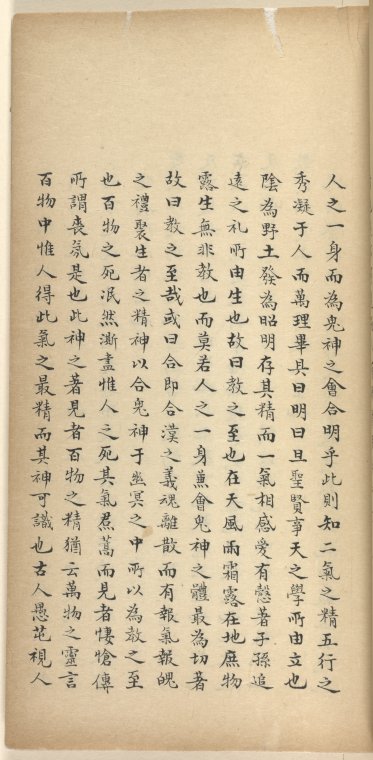 人之一身而為鬼神之會合明乎此則知二氣之精五行之
秀凝于人而萬理畢具曰明曰旦聖賢事天之學所由立也
陰為野土發為昭明存其精而一氣相感愛有慤著子孫追
遠之礼所由生也故曰教之至也在天風雨霜露在地庶物
露生無非教也而莫若人之一身薰會鬼神之體最為切著
故曰教之至哉或曰合即合漠之義魂離散而有報氣報魄
之禮聚生者之精神以合鬼神于幽冥之中所以為教之至
也百物之死泯然澌盡惟人之死其氣焄蒿而見者悽愴傳
所謂喪氣是也此神之著見者百物之精猶云萬物之靈言
百物中惟人得此氣之最精而其神可識也古人愚芚視人